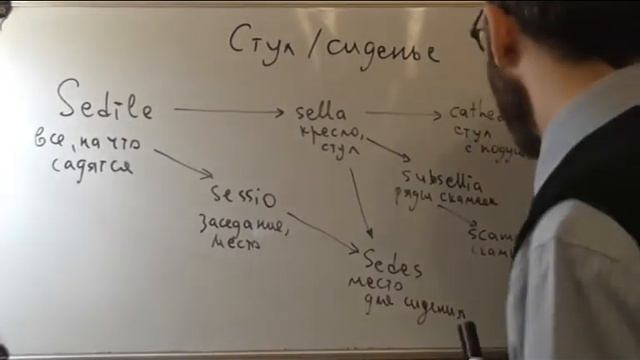 Стул / сиденье
Sedile
все, на что
садятся
sella
кресло,
стул
стул
subsellia
ряды скамеек
sessio
заседание,
место
Sedes
место
для сидения